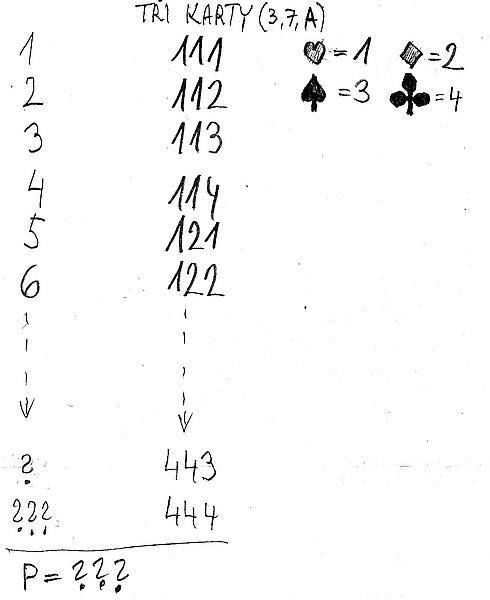 TŘI KARTY (3,7,A)
1 111 ♥=1 ♦=2
2 112 ♠=3 ♣=4
3 113
4 114
5 121
6 122
? 443
??? 444
P = ???